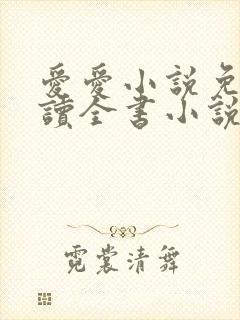 愛愛小説免
讀全書小說
霓裳清舞